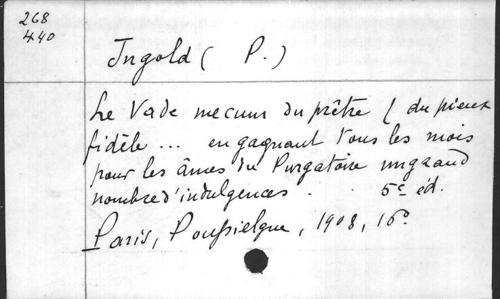 268
440
Ingold ( P. )
Le Vade mecum du prêtre ( du pieux
fidèle ... en gagnant tous les mois
pour les âmes du Purgatoire un grand
nombre d'indulgences . . 5e éd.
Paris, Poussielgue, 1908, 16°